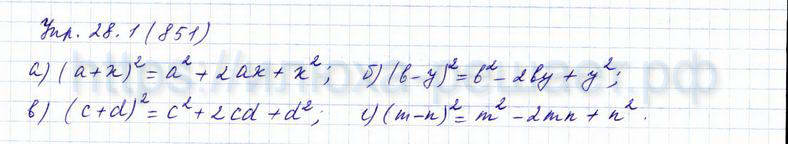 Упр. 28.1 (851)
а) (a+x)² = a² + 2ax + x²; б) (b-y)² = b² - 2by + y²;
в) (c+d)² = c² + 2cd + d²; г) (m-n)² = m² - 2mn + n².